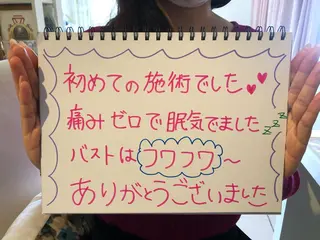 初めての施術でした♥♥
痛みゼロで眠気でました zzz
バストはフワフワ～
ありがとうございました